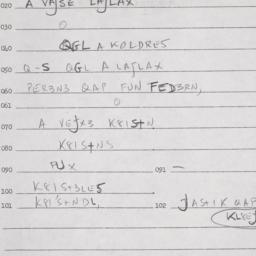 020 A VAJSE LAJLAX
030 O
040 QGL A KOLDRES
050 Q-S QGL A LAJLAX
060 PER3N3 QAP FUN FED3RN,
061 O
070 A VEJX3 K8IS+N
080 K8IS+NS
090 PUX 091 —
100 K8IS+3LES
101 K8I'S+NDL, 102 JAS+IK QAP